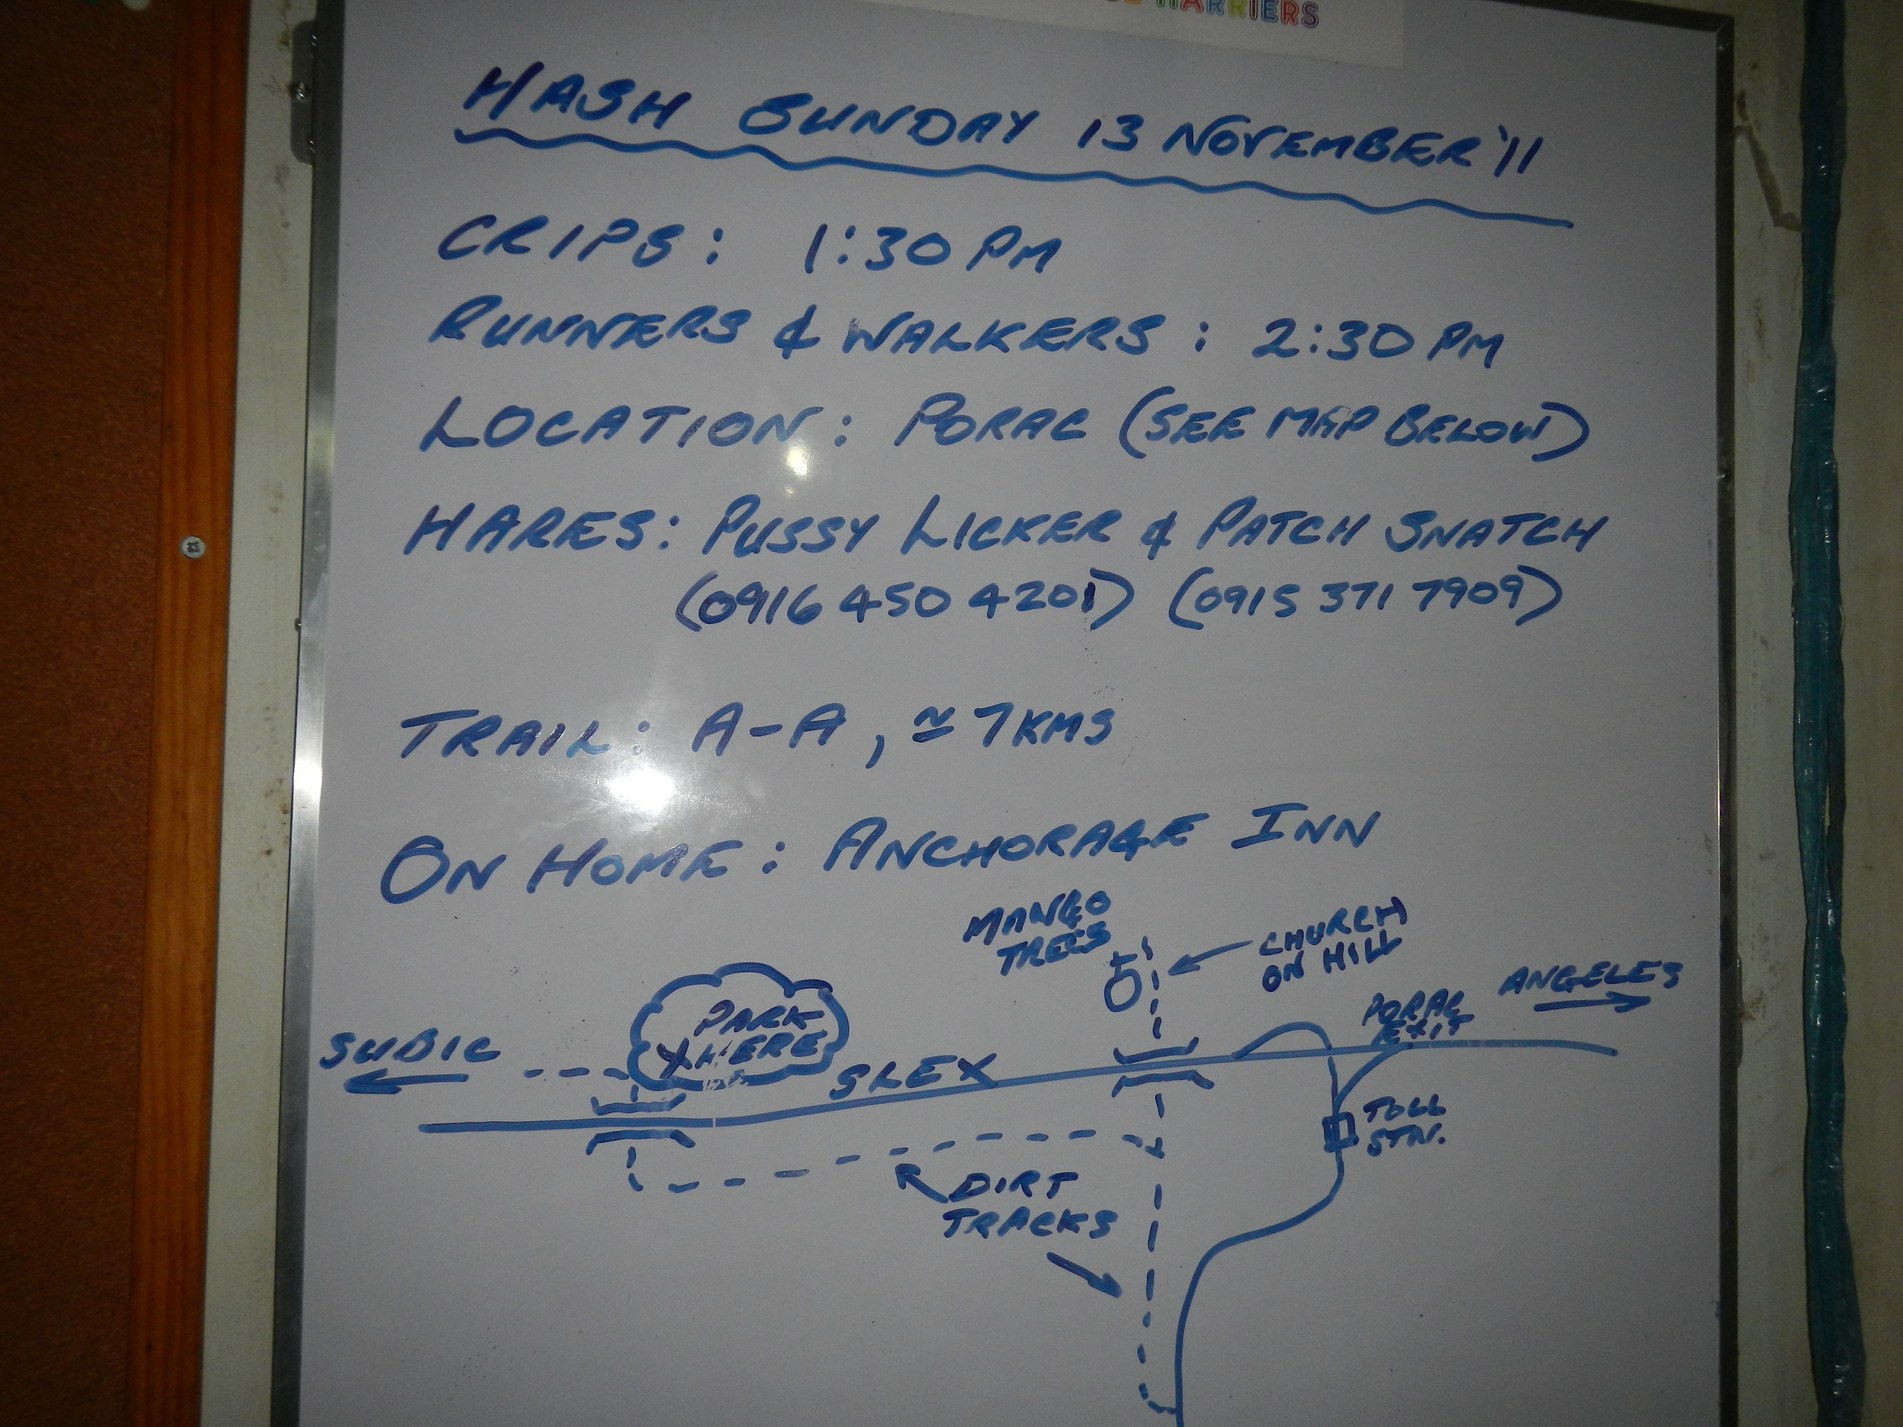 HARRIERS
HASH SUNDAY 13 NOVEMBER '11
CRIPS: 1:30 PM
RUNNERS & WALKERS: 2:30 PM
LOCATION: PORAC (SEE MAP BELOW)
HARES: PUSSY LICKER & PATCH SNATCH
(0916 450 4201) (0915 371 7909)
TRAIL: A-A, ≃ 7KMS
ON HOME: ANCHORAGE INN
MANGO
TREES
CHURCH
ON HILL
ANGELES
PORAC
EXIT
PARK
X HERE
SUBIC
SLEX
TOLL
STN.
DIRT
TRACKS